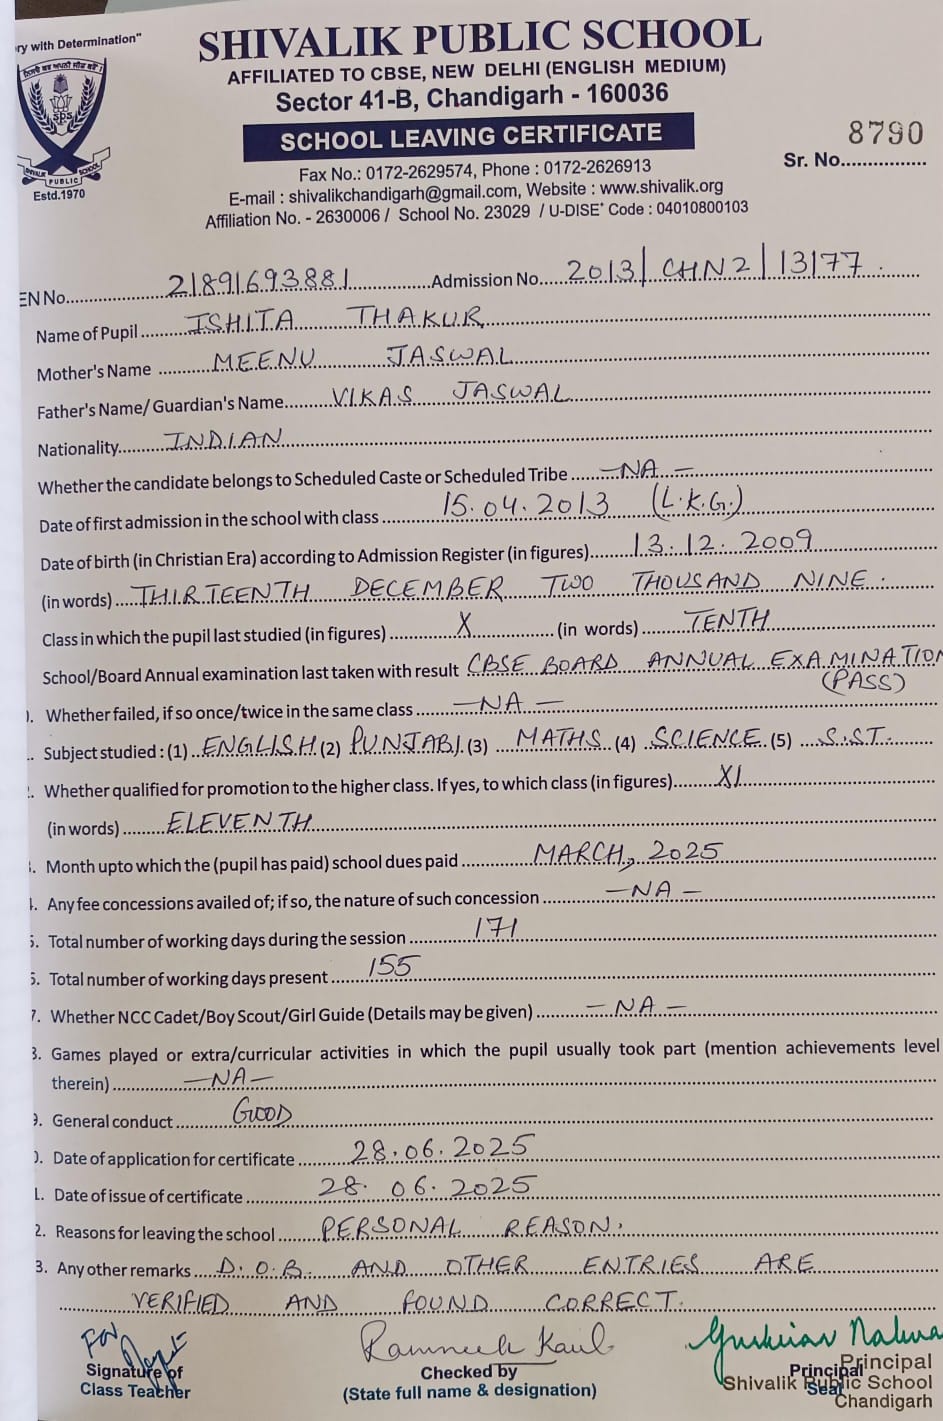 ry with Determination"
SHIVALIK PUBLIC SCHOOL
AFFILIATED TO CBSE, NEW DELHI (ENGLISH MEDIUM)
Sector 41-B, Chandigarh - 160036
SCHOOL LEAVING CERTIFICATE
8790
Sr. No...............
Fax No.: 0172-2629574, Phone : 0172-2626913
E-mail : shivalikchandigarh@gmail.com, Website : www.shivalik.org
Affiliation No. - 2630006 / School No. 23029 / U-DISE+ Code : 04010800103
sps
SHIVALIK PUBLIC SCHOOL
Estd.1970
EN No. 21891693881 Admission No. 2013/CHN2/13177.
Name of Pupil ISHITA THAKUR
Mother's Name MEENU JASWAL
Father's Name/ Guardian's Name VIKAS JASWAL
Nationality INDIAN
Whether the candidate belongs to Scheduled Caste or Scheduled Tribe —NA—
Date of first admission in the school with class 15.04.2013 (L.K.G.)
Date of birth (in Christian Era) according to Admission Register (in figures) 13.12.2009
(in words) THIRTEENTH DECEMBER TWO THOUSAND NINE.
Class in which the pupil last studied (in figures) X (in words) TENTH
School/Board Annual examination last taken with result CBSE BOARD ANNUAL EXAMINATION
(PASS)
). Whether failed, if so once/twice in the same class —NA—
.. Subject studied : (1) ENGLISH (2) PUNJABI (3) MATHS (4) SCIENCE (5) S.ST.
2. Whether qualified for promotion to the higher class. If yes, to which class (in figures) XI
(in words) ELEVENTH
3. Month upto which the (pupil has paid) school dues paid MARCH, 2025
4. Any fee concessions availed of; if so, the nature of such concession —NA—
5. Total number of working days during the session 171
6. Total number of working days present 155
7. Whether NCC Cadet/Boy Scout/Girl Guide (Details may be given) —NA—
8. Games played or extra/curricular activities in which the pupil usually took part (mention achievements level
therein) —NA—
9. General conduct GOOD
0. Date of application for certificate 28.06.2025
1. Date of issue of certificate 28.06.2025
2. Reasons for leaving the school PERSONAL REASON.
3. Any other remarks D.O.B. AND OTHER ENTRIES ARE
VERIFIED AND FOUND CORRECT.
For
Signature of
Class Teacher
Kaul
Checked by
(State full name & designation)
Principal
Seal
Principal
Shivalik Public School
Chandigarh